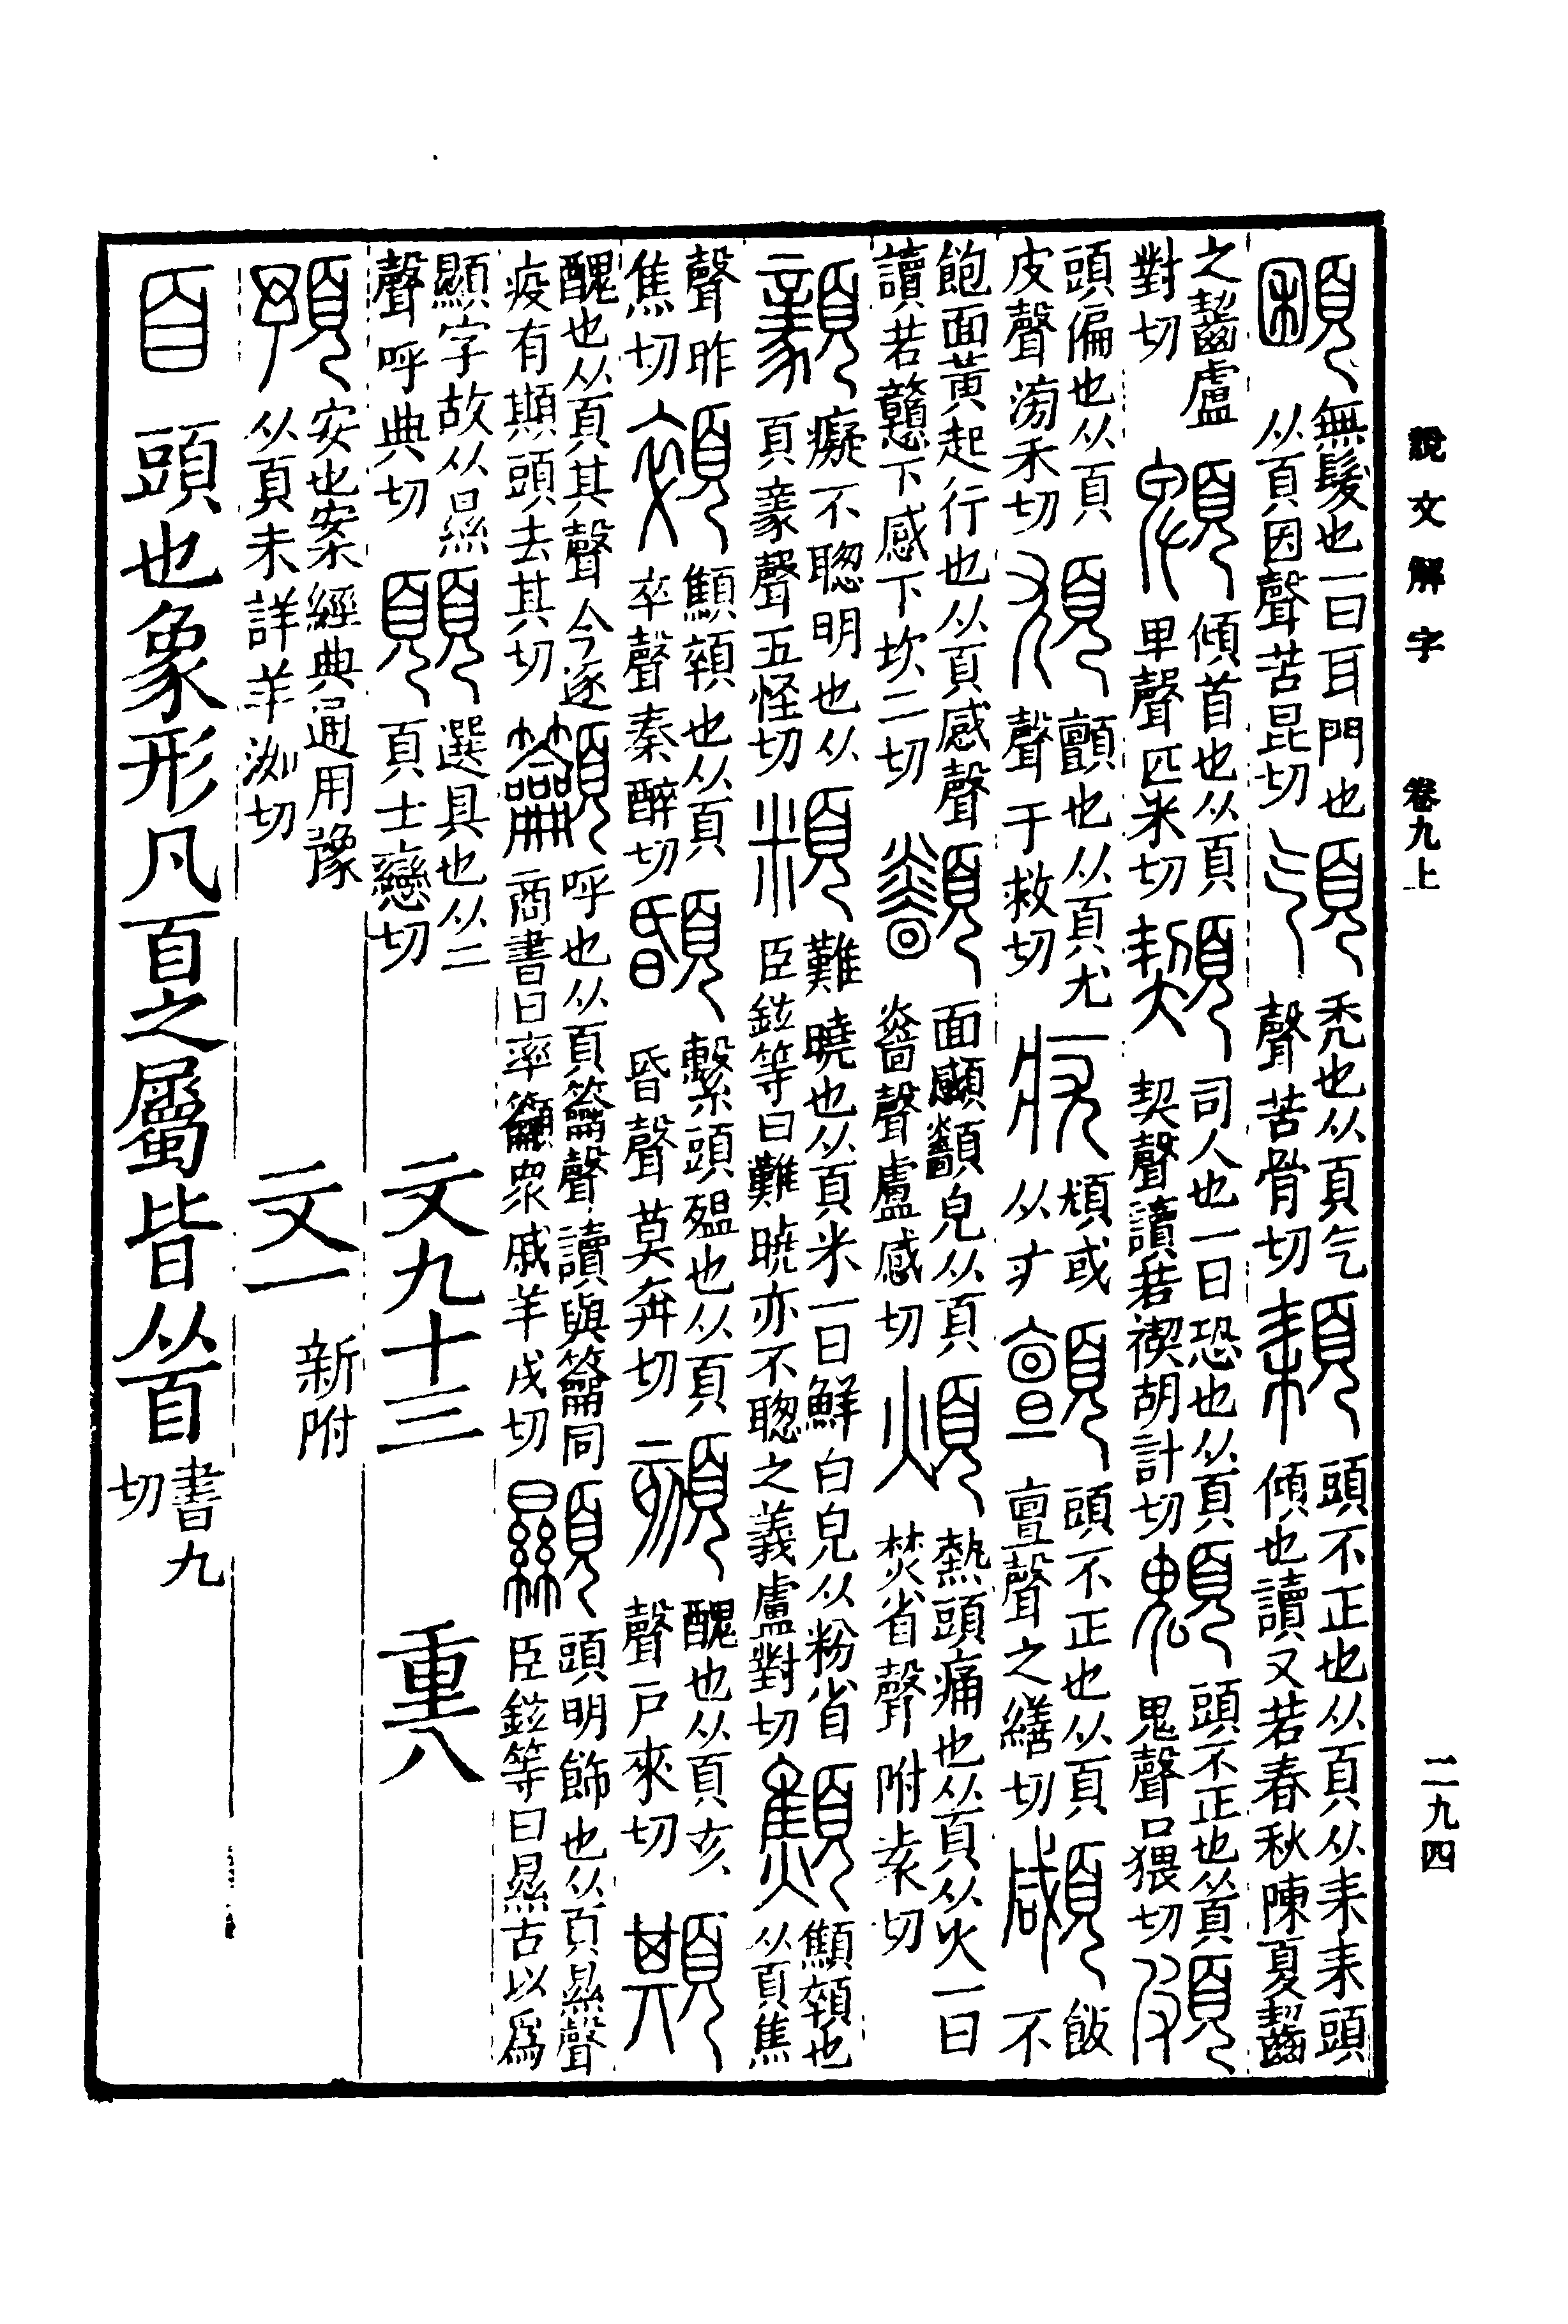 說文解字　卷九上　二九四
無髮也一曰耳門也从頁𡇡聲苦昆切 𩑔 禿也从頁气聲苦骨切 頛 頭不正也从頁从耒耒頭傾也讀又若春秋陳夏齧
之齧盧對切 䫌 傾首也从頁卑聲匹米切 䫔 司人也一曰恐也从頁契聲讀若禊胡計切 䫥 頭不正也从頁鬼聲口猥切 頗
頭偏也从頁皮聲滂禾切 𩑣 顫也从頁尤聲于救切 疣 𩑣或从疒 顫 頭不正也从頁亶聲之繕切 顑 飯不
飽面黃起行也从頁咸聲讀若戇下感下坎二切 顲 面顑顲皃从頁㐭聲盧感切 煩 熱頭痛也从頁从火一曰焚省聲附袁切
顡 癡不聰明也从頁豙聲五怪切 頪 難曉也从頁米一曰鮮白皃从粉省臣鉉等曰難曉亦不聰之義盧對切 顦 顦顇也从頁焦
聲昨焦切 顇 顦顇也从頁卒聲秦醉切 繫頭殟也从頁昏聲莫奔切 頦 醜也从頁亥聲戶來切 䫏
醜也从頁其聲今逐疫有䫏頭去其切 籲 呼也从頁籥聲讀與籥同商書曰率籲衆戚羊戍切 顯 頭明飾也从頁㬎聲臣鉉等曰㬎古以爲
顯字故从㬎聲呼典切 選具也从二頁士戀切　文九十三　重八
預 安也案經典通用豫从頁未詳羊洳切　文一　新附
𦣻 頭也象形凡𦣻之屬皆从𦣻書九切